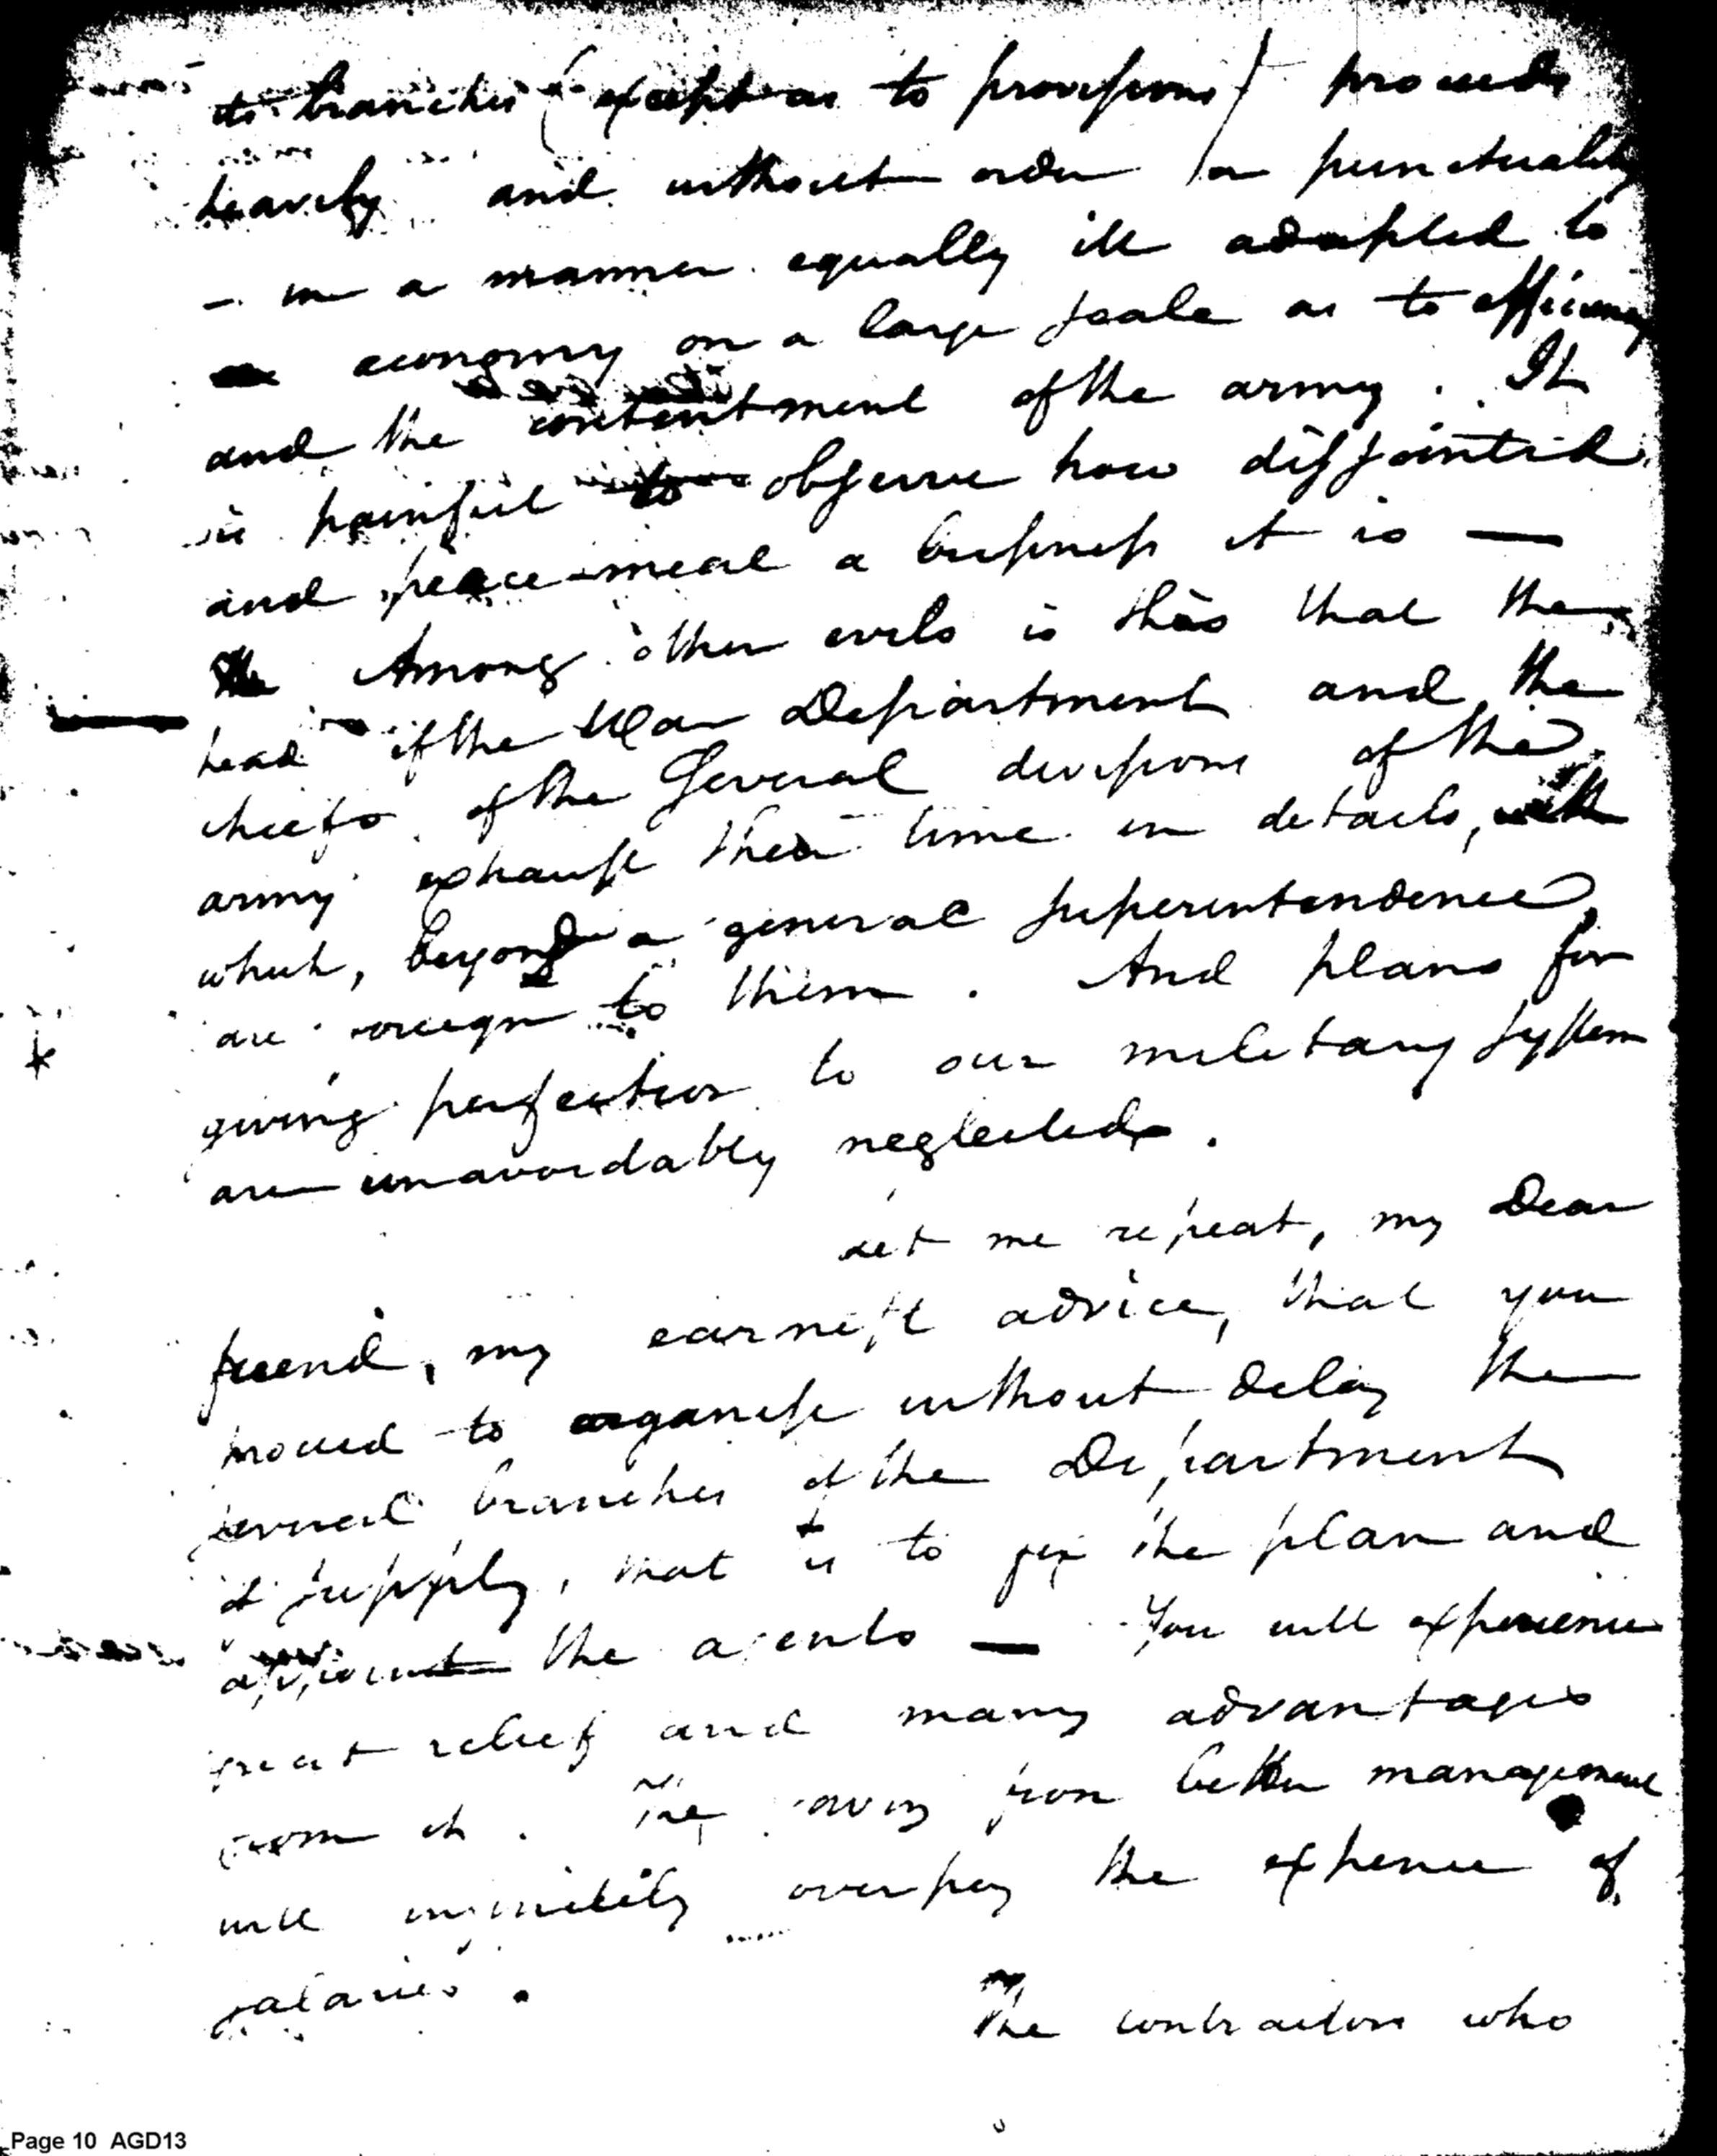 its branches (except as to provisions) proceeds
heavily and without order or punctuality
— in a manner equally ill adapted to
economy on a large scale as to efficiency
and the contentment of the army. It
is painful to observe how disjointed
and peace-meal a business it is —
Among other evils is this that the
head of the War Department and the
chiefs of the several divisions of the
army exhaust their time in details,
which, beyond a general superintendence,
are foreign to them. And plans for
giving perfection to our military system
are unavoidably neglected.
Let me repeat, my Dear
friend, my earnest advice, that you
proceed to organise without delay the
several branches of the Department
of supply, that is to fix the plan and
appoint the agents — You will experience
great relief and many advantages
from it. The saving from better management
will infinitely overpay the expence of
salaries.
The contractors who
Page 10 AGD13